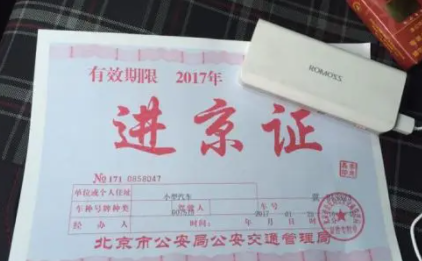 有效期限 2017年
ROMOSS
进京证
№171 0858047
单位或个人住址
小型汽车
车种号牌种类
驾驶人
车号
2017
经办人
时间:
年 月 日
北京市公安局公安交通管理局